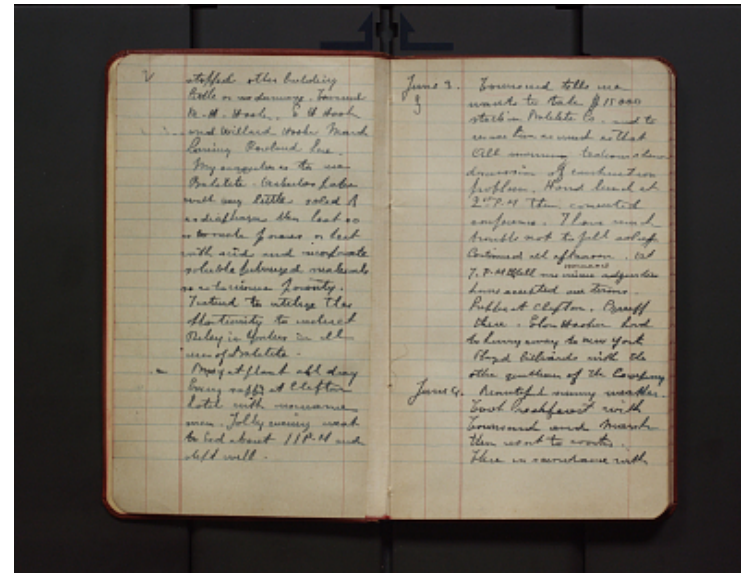 stopped other building
little or no damage. Townsend
E. H. Hooker
and Willard Hooker Marsh
Rowland
My suggestion is to use
Bakelite. Asbestos paper
with very little
as diaphragm then heat so
as to make porous or heat
with acid and incorporate
soluble pulverized materials
so as to increase porosity.
I intend to utilize this
opportunity to interest
in Yonkers in all
uses of Bakelite.
at plant all day
evening supper at Clifton
hotel with
men. Jolly evening went
to bed about 11 P.M and
slept well.
June 3. Townsend tells me
wants to take $15000
stock in Bakelite Co. and to
as much as that
All morning
discussion of construction
problem. Hand lunch at
2 P.M then
conference. I have much
trouble not to fall asleep
Continued all afternoon. At
7. P.M
have accepted our terms.
Supper at Clifton.
there. Elon Hooker had
to hurry away to New York
Played billiards with the
other gentlemen of the Company
June 4. Beautiful sunny weather.
Took breakfast with
Townsend and Marsh
then went to works.
There in accordance with